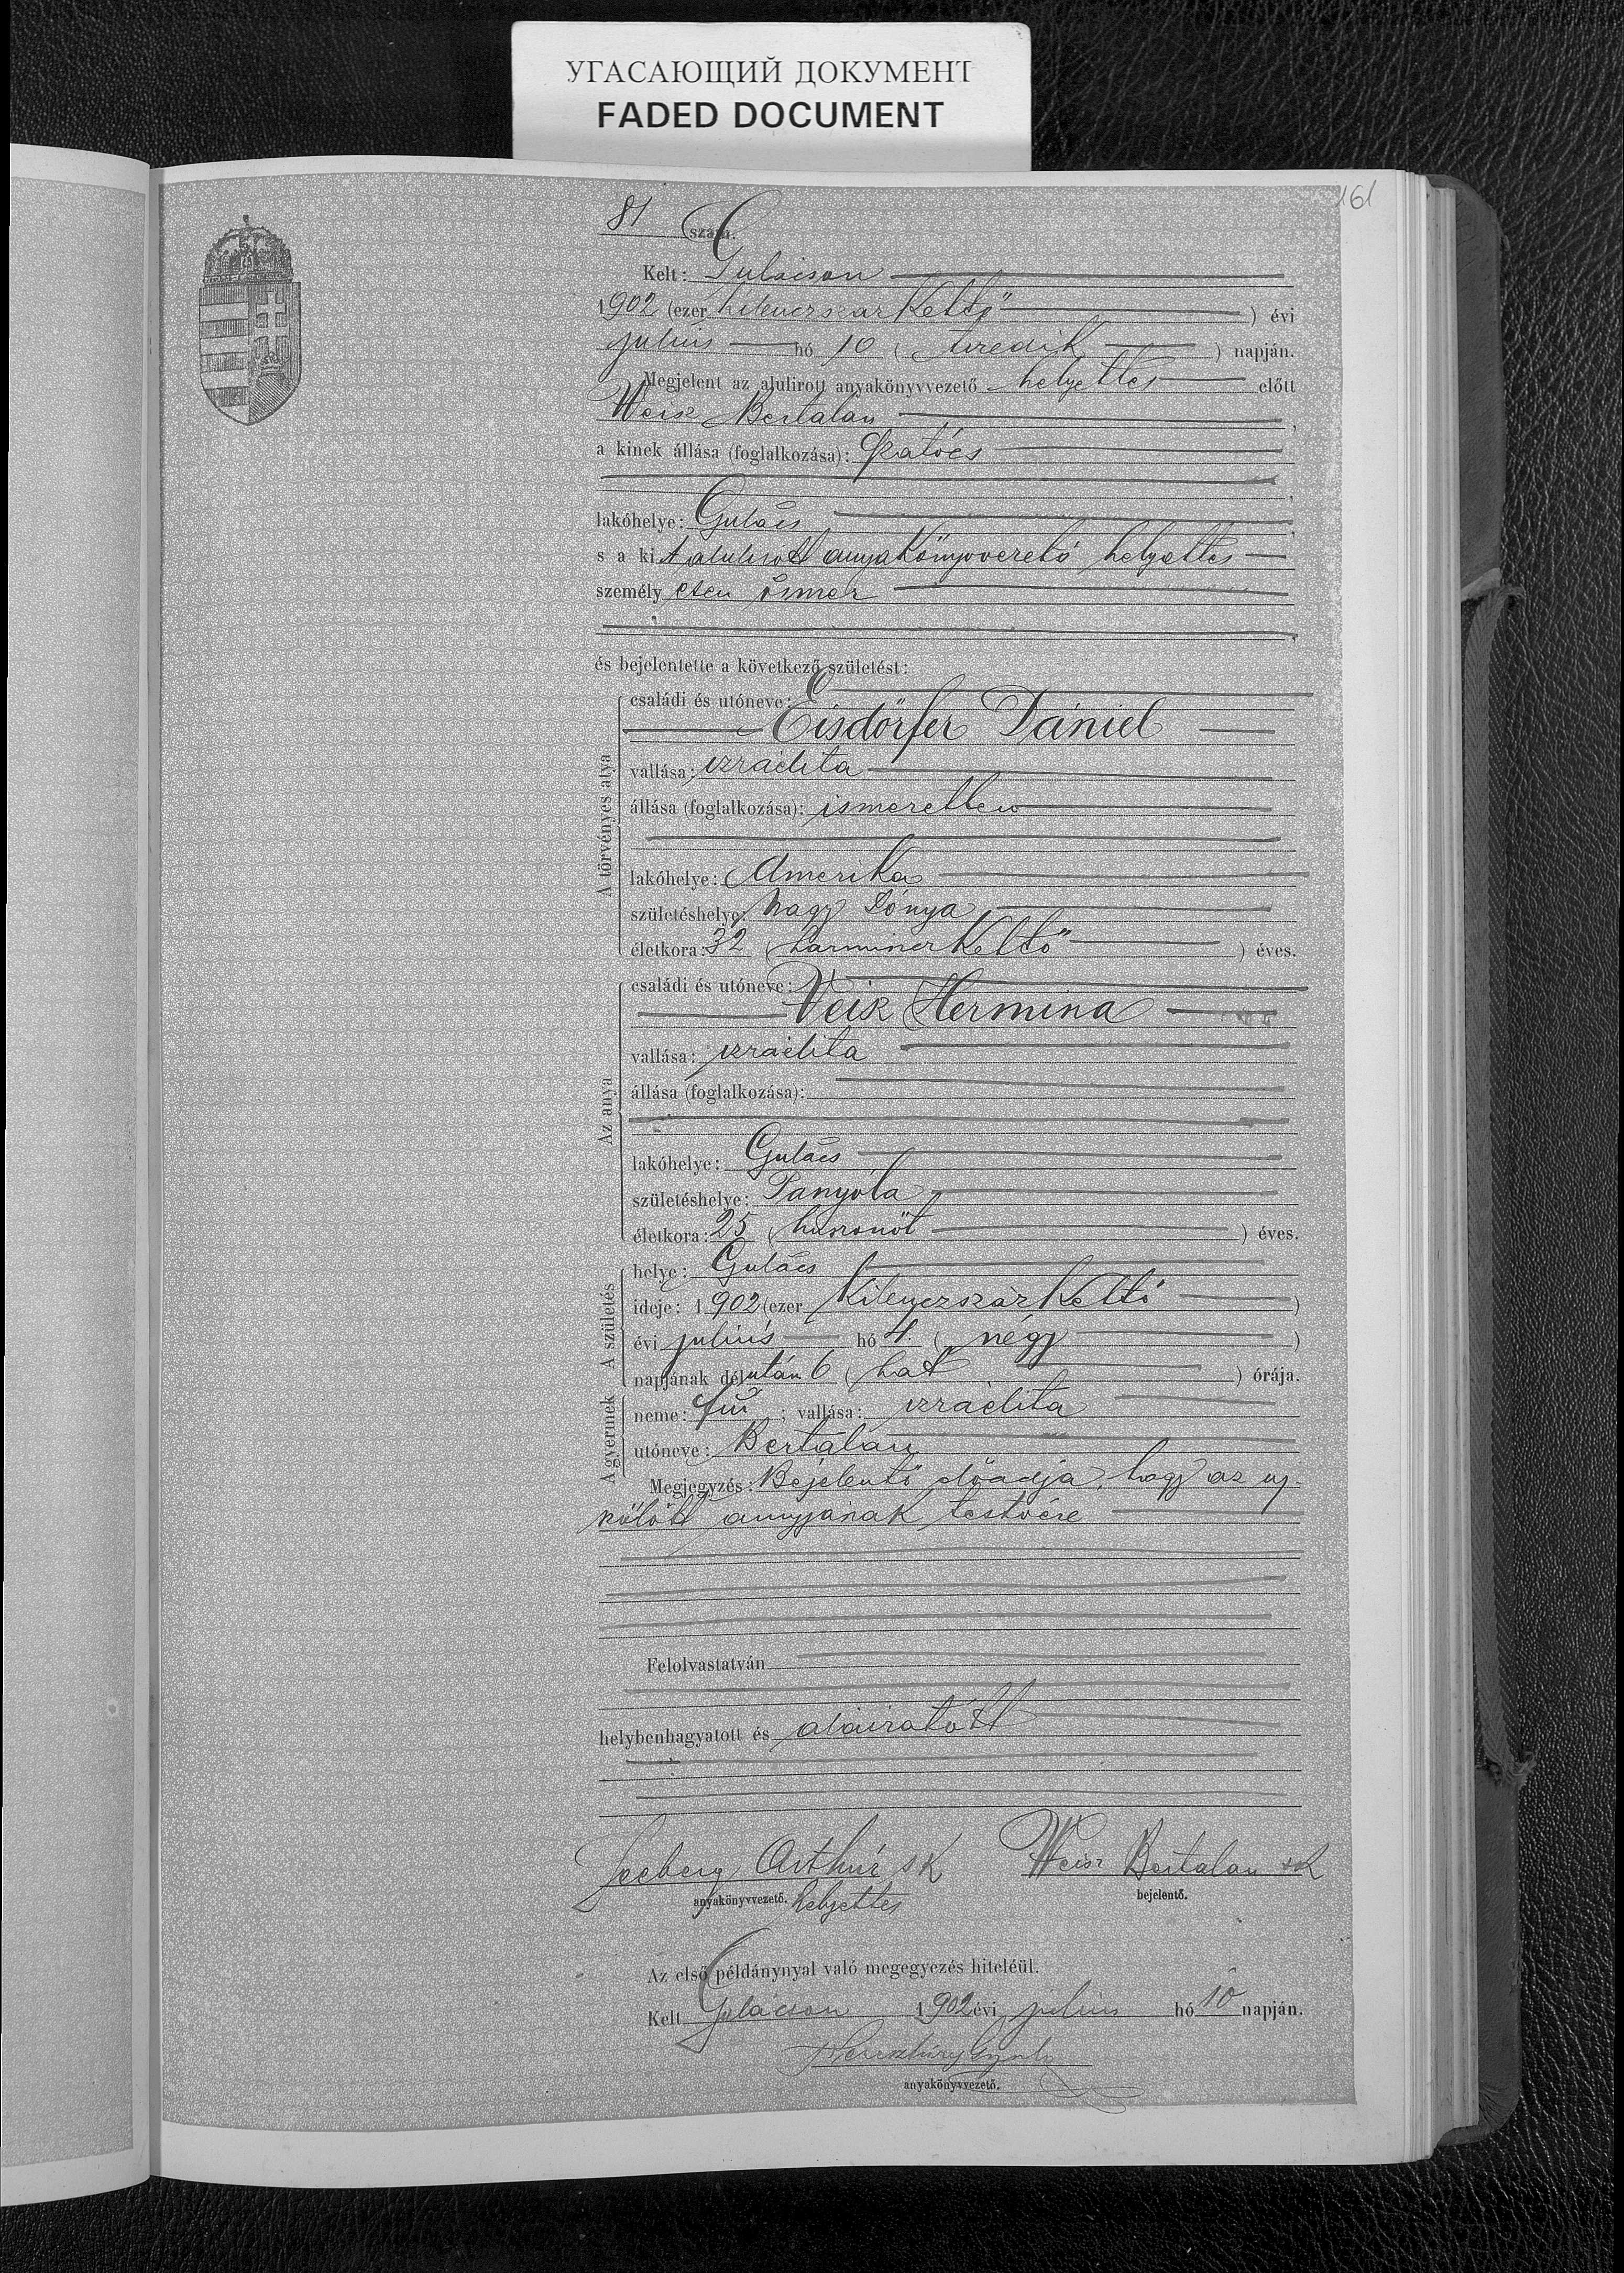 УГАСАЮЩИЙ ДОКУМЕНТ
FADED DOCUMENT
161
81 szám.
Kelt: Gulácson
1902 (ezer kilenczszázkettő) évi
julius hó 10 (tizedik) napján.
Megjelent az alulirott anyakönyvvezető helyettes előtt
Weisz Bertalan,
a kinek állása (foglalkozása): szatócs
lakóhelye: Gulács
s a kit alulirott anyakönyvvezető helyettes
személyesen ösmer
és bejelentette a következő születést:
A törvényes atya
családi és utóneve:
Eisdörfer Dániel
vallása: izraelita
állása (foglalkozása): ismeretlen
lakóhelye: Amerika
születéshelye: Nagy Dónya
életkora: 32 (harminczkettő) éves.
Az anya
családi és utóneve:
Veisz Hermina
vallása: izraelita
állása (foglalkozása):
lakóhelye: Gulács
születéshelye: Panyola
életkora: 25 (huszonöt) éves.
A születés
helye: Gulács
ideje: 1902 (ezer kilenczszázkettő)
évi julius hó 4. (négy)
napjának délután 6 (hat) órája.
A gyermek
neme: fiú; vallása: izraelita
utóneve: Bertalan
Megjegyzés: Bejelentő előadja, hogy az uj-
szülött anyjának testvére
Felolvastatván
helybenhagyatott és aláiratott
Seeberg Arthúr sk Weisz Bertalan sk
anyakönyvvezető. helyettes bejelentő.
Az első példánynyal való megegyezés hiteléül.
Kelt Gulácson 1902 évi julius hó 10 napján.
anyakönyvvezető.